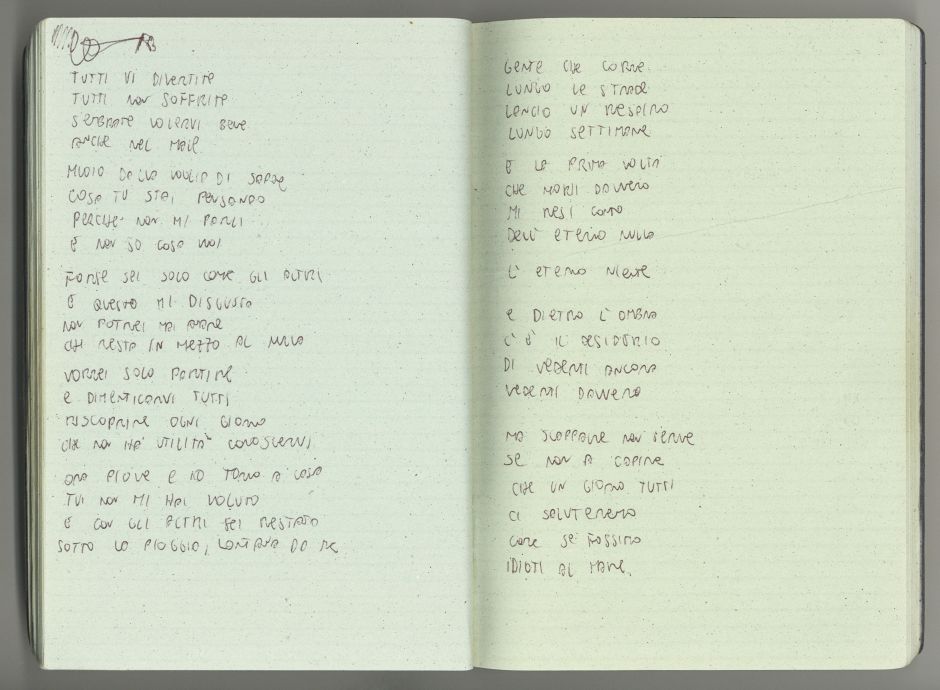 TUTTI VI DIVERTITE
TUTTI NON SOFFRITE
SEMBRATE VOLERVI BENE
ANCHE NEL MALE
MUOIO DALLA VOGLIA DI SAPERE
COSA TU STAI PENSANDO
PERCHE' NON MI PARLI
E NON SO COSA VUOI
FORSE SEI SOLO COME GLI ALTRI
E QUESTO MI DISGUSTA
NON POTREI MAI AMARE
CHI RESTA IN MEZZO AL NULLA
VORREI SOLO PARTIRE
E DIMENTICARVI TUTTI
RISCOPRIRE OGNI GIORNO
CHE NON HA UTILITA' CONOSCERVI
ORA PIOVE E IO TORNO A CASA
TU NON MI HAI VOLUTO
E CON GLI ALTRI SEI RESTATO
SOTTO LA PIOGGIA, LONTANA DA ME
GENTE CHE CORRE
LUNGO LE STRADE
LANCIO UN RESPIRO
LUNGO SETTIMANE
E LA PRIMA VOLTA
CHE MORII DAVVERO
MI RESI CONTO
DELL' ETERNO NULLA
L' ETERNO NIENTE
E DIETRO L' OMBRA
C' È IL DESIDERIO
DI VEDERTI ANCORA
VEDERTI DAVVERO
MA SCAPPARE NON SERVE
SE NON A CAPIRE
CHE UN GIORNO TUTTI
CI SALUTEREMO
COME SE FOSSIMO
IDIOTI AL MARE